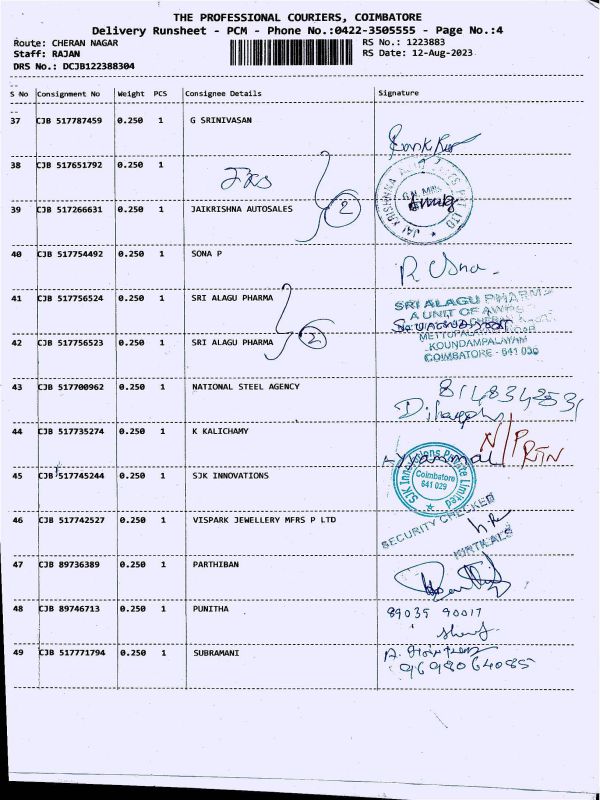 THE PROFESSIONAL COURIERS, COIMBATORE
Delivery Runsheet - PCM - Phone No.:0422-3505555 - Page No.:4
Route: CHERAN NAGAR RS No.: 1223883
Staff: RAJAN RS Date: 12-Aug-2023
DRS No.: DCJB122388304
S No Consignment No Weight PCS Consignee Details Signature
37 CJB 517787459 0.250 1 G SRINIVASAN
38 CJB 517651792 0.250 1
39 CJB 517266631 0.250 1 JAIKRISHNA AUTOSALES 2
JAI KRISHNA PVT LTD
40 CJB 517754492 0.250 1 SONA P
41 CJB 517756524 0.250 1 SRI ALAGU PHARMA
SRI ALAGU PHARMA
A UNIT OF
42 CJB 517756523 0.250 1 SRI ALAGU PHARMA 2
KOUNDAMPALAYAM
COIMBATORE - 641 030
43 CJB 517700962 0.250 1 NATIONAL STEEL AGENCY
44 CJB 517735274 0.250 1 K KALICHAMY
N/P RTN
45 CJB 517745244 0.250 1 SJK INNOVATIONS
SJK Innovations Private Limited
Coimbatore
641 029
46 CJB 517742527 0.250 1 VISPARK JEWELLERY MFRS P LTD
SECURITY CHECKED
KIRTILALS
47 CJB 89736389 0.250 1 PARTHIBAN
48 CJB 89746713 0.250 1 PUNITHA 89035 90017
49 CJB 517771794 0.250 1 SUBRAMANI
9698064085